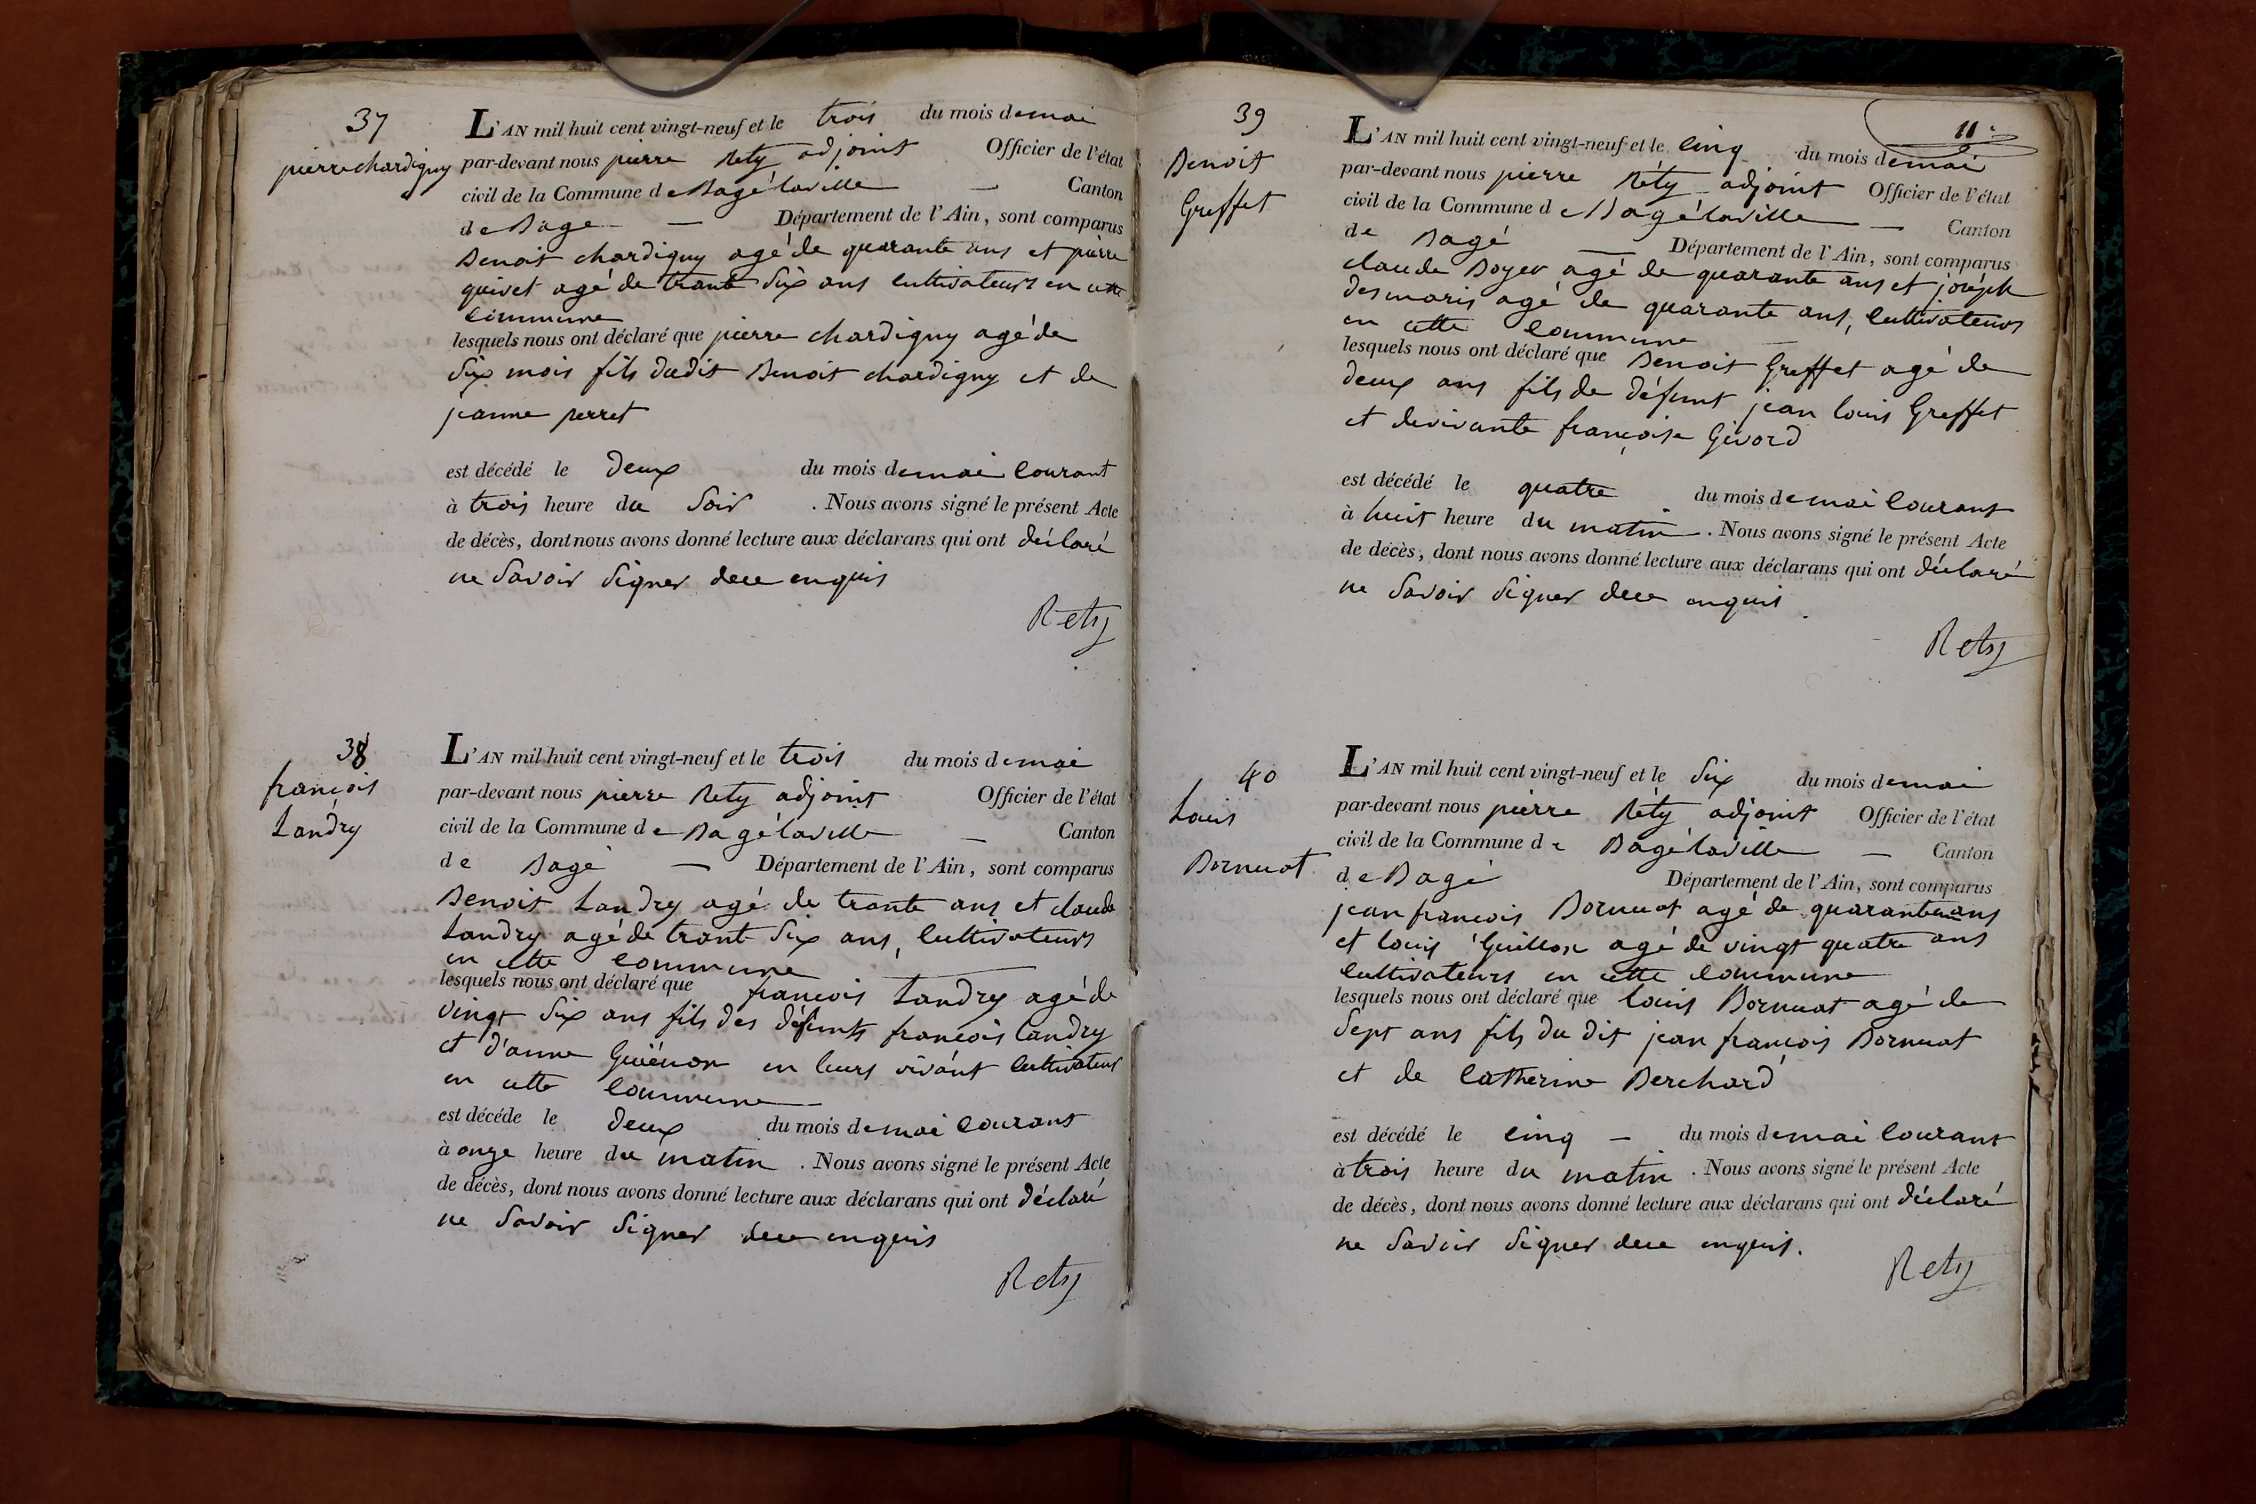 37
pierre chardigny
L'AN mil huit cent vingt-neuf et le trois du mois de mai
par-devant nous pierre Rety adjoint Officier de l'état
civil de la Commune de Bagé laville — Canton
de Bage — Département de l'Ain, sont comparus
Benoit chardigny agé de quarante ans et pierre
quivet agé de trante Six ans cultivateurs en cette
commune
lesquels nous ont déclaré que pierre chardigny agé de
Six mois fils dudit Benoit chardigny et de
jeanne perret
est décédé le deux du mois de mai courant
à trois heure du Soir . Nous avons signé le présent Acte
de décès, dont nous avons donné lecture aux déclarans qui ont déclaré
ne Savoir Signer dece enquis
Rety
38
françois
Landry
L'AN mil huit cent vingt-neuf et le trois du mois de mai
par-devant nous pierre Rety adjoint Officier de l'état
civil de la Commune de Bagé laville — Canton
de Bagé — Département de l'Ain, sont comparus
Benoit Landry agé de trante ans et claude
Landry agé de trante Six ans, cultivateurs
en cette commune
lesquels nous ont déclaré que françois Landry agé de
vingt Six ans fils des défunts françois Landry
et d'anne Guiénon en leurs vivant cultivateurs
en cette commune
est décéde le deux du mois de mai courant
à onze heure du matin . Nous avons signé le présent Acte
de décès, dont nous avons donné lecture aux déclarans qui ont déclaré
ne Savoir Signer dece enquis
Rety
11e
39
Benoit
Greffet
L'AN mil huit cent vingt-neuf et le cinq du mois de mai
par-devant nous pierre Réty adjoint Officier de l'état
civil de la Commune de Bagé laville — Canton
de Bagé — Département de l'Ain, sont comparus
claude Boyer agé de quarante ans et joséph
desmaris agé de quarante ans, cultivateurs
en cette commune —
lesquels nous ont déclaré que Benoit Greffet agé de
deux ans fils de défunt jean louis Greffet
et de vivante françoise Givord
est décédé le quatre du mois de mai courant
à huit heure du matin . Nous avons signé le présent Acte
de décès, dont nous avons donné lecture aux déclarans qui ont déclaré
ne Savoir Signer dece enquis .
Rety
40
Louis
Bornuat
L'AN mil huit cent vingt-neuf et le Six du mois de mai
par-devant nous pierre Réty adjoint Officier de l'état
civil de la Commune de Bagé laville — Canton
de Bagé Département de l'Ain, sont comparus
jean françois Bornuat agé de quarante ans
et louis Guillon agé de vingt quatre ans
cultivateurs en cette commune
lesquels nous ont déclaré que louis Bornuat agé de
Sept ans fils du dit jean françois Bornuat
et de Catherine Berchard
est décédé le cinq — du mois de mai courant
à trois heure du matin . Nous avons signé le présent Acte
de décès, dont nous avons donné lecture aux déclarans qui ont déclaré
ne Savoir Signer dece enquis.
Rety